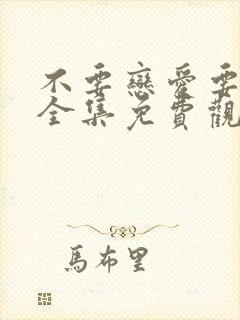 不要戀愛要
全集免費觀
馬布里